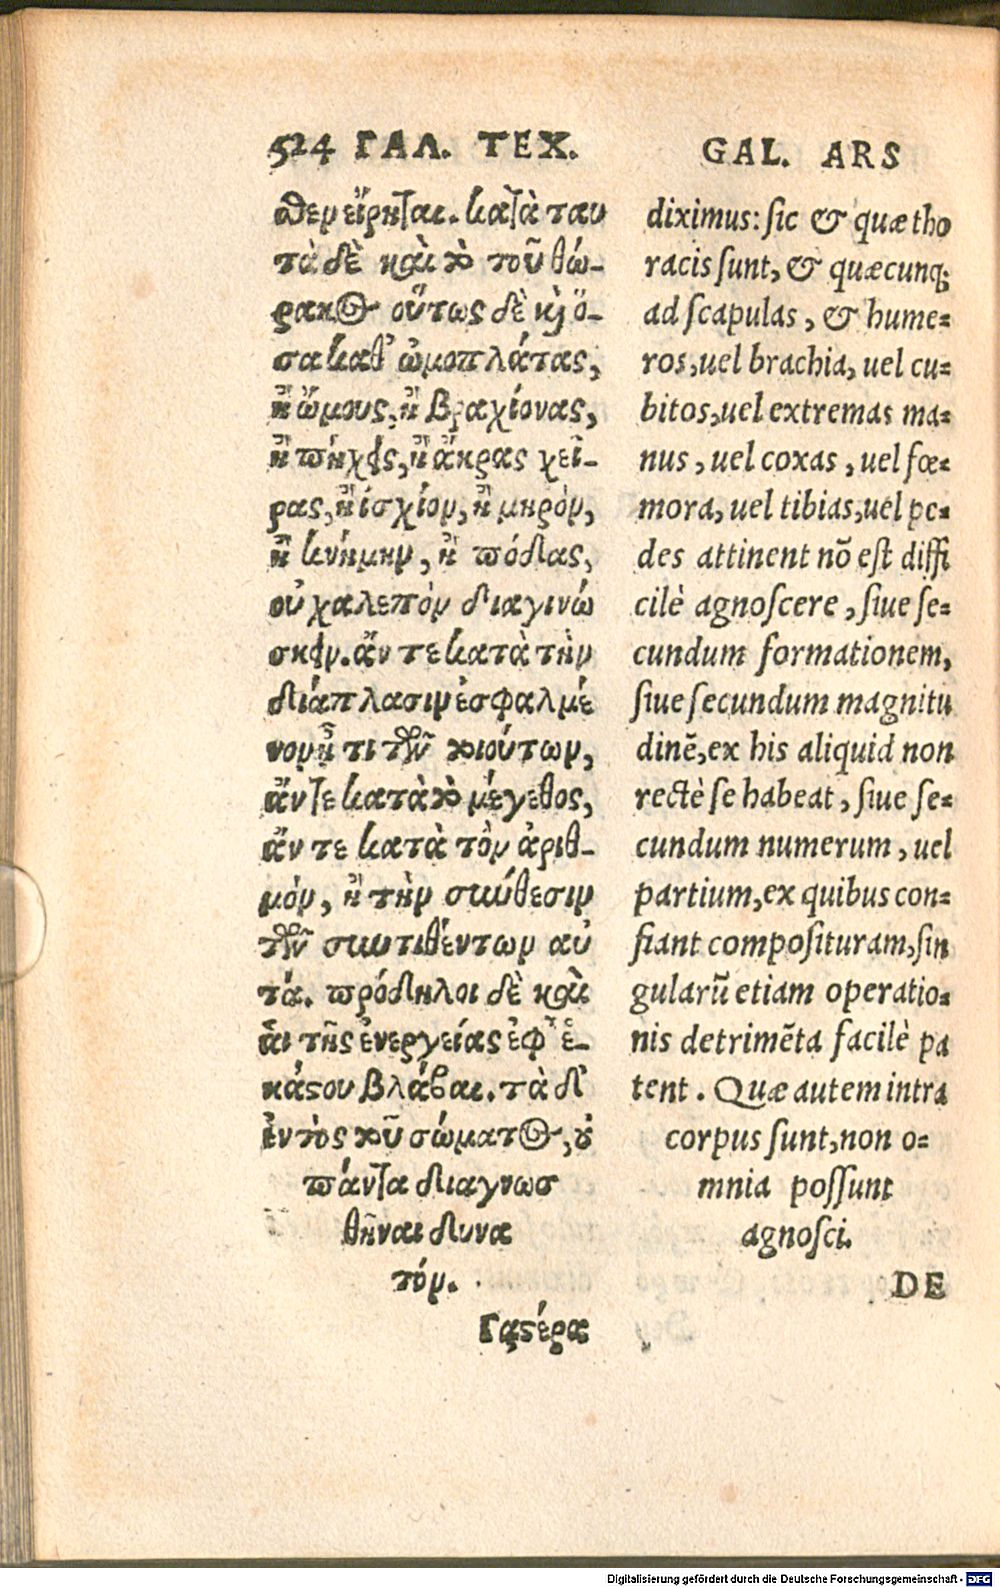 524 ΓΑΛ. ΤΕΧ.
ωθεν εἴρηται. κατὰ ταυ
τὰ δὲ καὶ τὸ τοῦ θώ-
ρακος οὕτως δὲ καὶ ὅ-
σα καθ' ὠμοπλάτας,
ἢ ὤμους, ἢ βραχίονας,
ἢ πήχεις, ἢ ἄκρας χεῖ-
ρας, ἢ ἰσχίον, ἢ μηρὸν,
ἢ κνήμην, ἢ πόδας,
οὐ χαλεπὸν διαγινώ
σκειν. ἄν τε κατὰ τὴν
διάπλασιν ἐσφαλμέ
νον ᾖ τι τῶν τοιούτων,
ἄν τε κατὰ τὸ μέγεθος,
ἄν τε κατὰ τὸν ἀριθ-
μὸν, ἢ τὴν σύνθεσιν
τῶν συντιθέντων αὐ
τά. πρόδηλοι δὲ καὶ
αἱ τῆς ἐνεργείας ἐφ' ἑ-
κάστου βλάβαι. τὰ δ'
ἐντὸς τοῦ σώματος, οὐ
πάντα διαγνωσ
θῆναι δυνα
τόν.
Γαστέρα
GAL. ARS
diximus: sic & quæ tho
racis sunt, & quæcunq;
ad scapulas, & hume=
ros, uel brachia, uel cu=
bitos, uel extremas ma=
nus, uel coxas, uel fœ=
mora, uel tibias, uel pe=
des attinent nõ est diffi
cilè agnoscere, siue se=
cundum formationem,
siue secundum magnitu
dinẽ, ex his aliquid non
rectè se habeat, siue se=
cundum numerum, uel
partium, ex quibus con=
fiant composituram, sin
gularũ etiam operatio=
nis detrimẽta facilè pa
tent. Quæ autem intra
corpus sunt, non o=
mnia possunt
agnosci.
DE
Digitalisierung gefördert durch die Deutsche Forschungsgemeinschaft - DFG